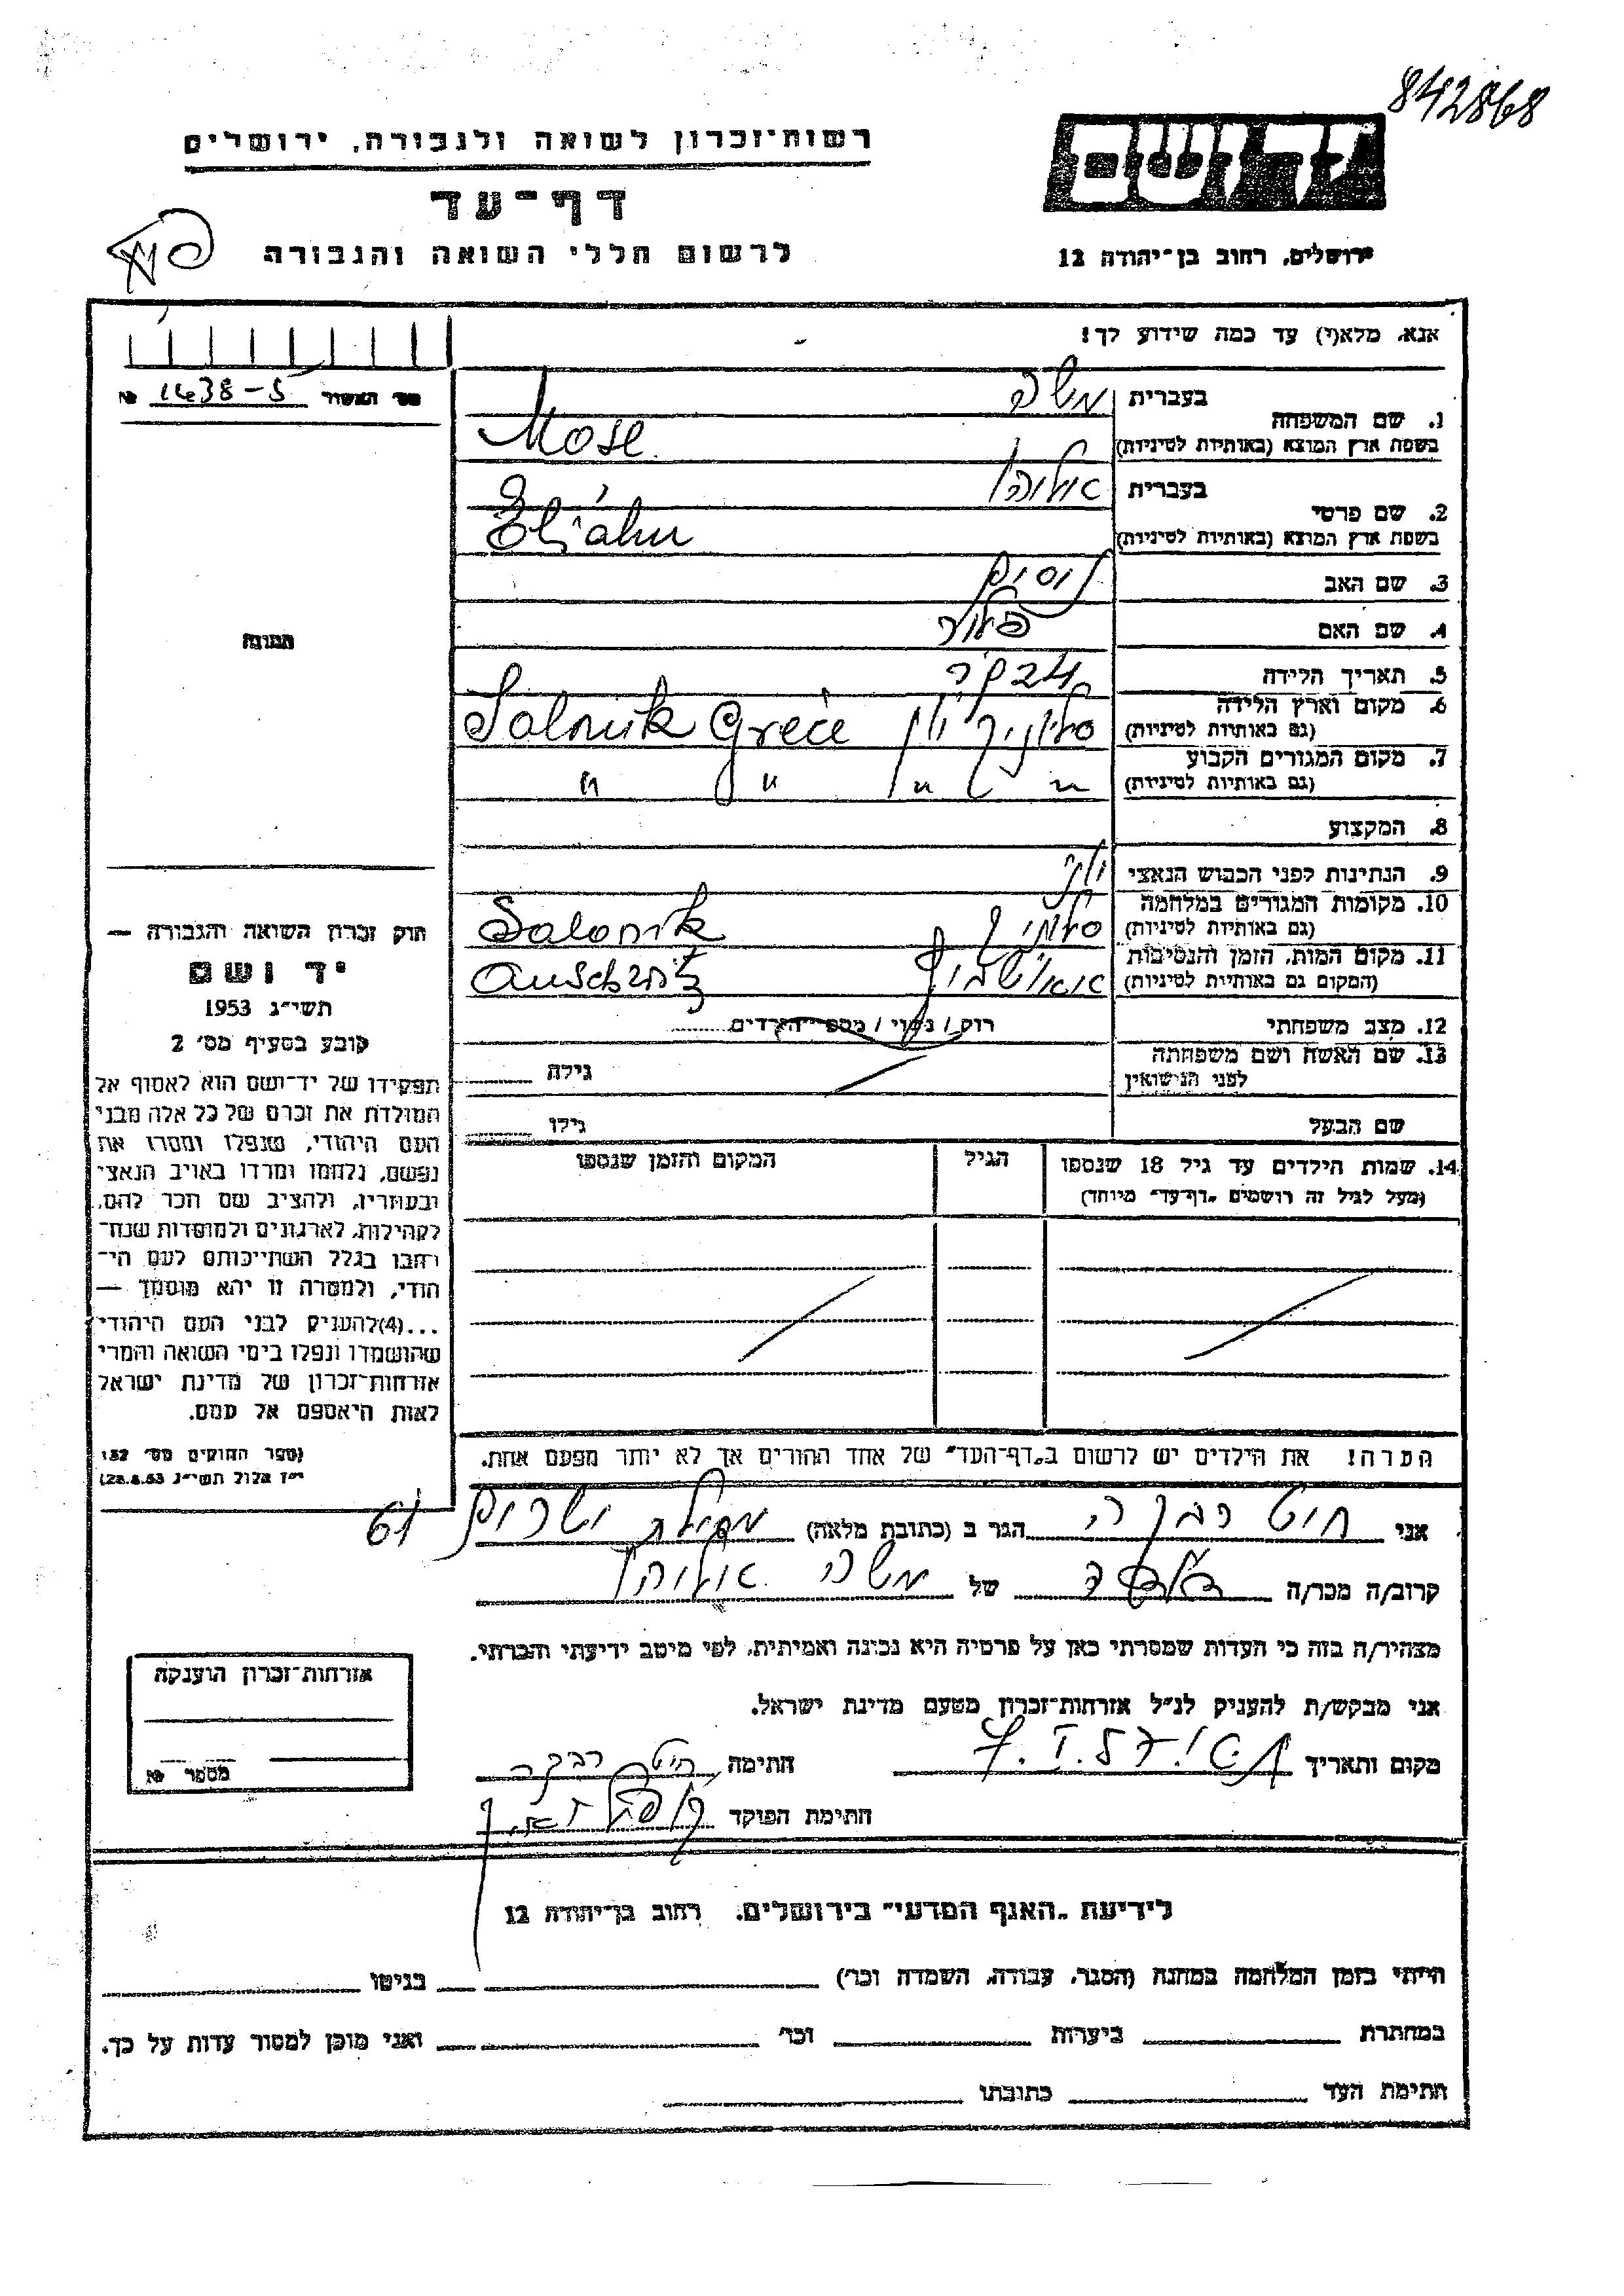 842868
רשות-זכרון לשואה ולגבורה, ירושלים
יד ושם
דף-עד
לרשום חללי השואה והגבורה
ירושלים, רחוב בן-יהודה 12
אנא, מלא(י) עד כמה שידוע לך!
מס' האשור 1438-5 №
בעברית משה
1. שם המשפחה
בשפת ארץ המוצא (באותיות לטיניות) Mose
בעברית אליהו
2. שם פרטי
בשפת ארץ המוצא (באותיות לטיניות) Eliahu
3. שם האב נסים
4. שם האם פלור
תמונה
5. תאריך הלידה
6. מקום וארץ הלידה סלוניקי יון Salonik Grece
(גם באותיות לטיניות)
7. מקום המגורים הקבוע " " " "
(גם באותיות לטיניות)
8. המקצוע
9. הנתינות לפני הכבוש הנאצי יון
10. מקומות המגורים במלחמה סלוניקי Salonik
(גם באותיות לטיניות)
11. מקום המות, הזמן והנסיבות
(המקום גם באותיות לטיניות)
12. מצב משפחתי רוק / נשוי / מספר הילדים
13. שם האשה ושם משפחתה
לפני הנישואין גילה
שם הבעל גילו
14. שמות הילדים עד גיל 18 שנספו הגיל המקום והזמן שנספו
(מעל לגיל זה רושמים „דף-עד" מיוחד)
חוק זכרון השואה והגבורה —
יד ושם
תשי"ג 1953
קובע בסעיף מס' 2
תפקידו של יד-ושם הוא לאסוף אל
המולדת את זכרם של כל אלה מבני
העם היהודי, שנפלו ומסרו את
נפשם, נלחמו ומרדו באויב הנאצי
ובעוזריו, ולהציב שם וזכר להם,
לקהילות, לארגונים ולמוסדות שנח-
רבו בגלל השתייכותם לעם הי-
הודי, ולמטרה זו יהא מוסמך —
...(4)להעניק לבני העם היהודי
שהושמדו ונפלו בימי השואה והמרי
אזרחות-זכרון של מדינת ישראל
לאות היאספם אל עמם.
(ספר החוקים מס' 132
י"ז אלול תשי"ג 28.8.53)
הערה! את הילדים יש לרשום ב„דף-העד" של אחד ההורים אך לא יותר מפעם אחת.
אני חיט רבקה הגר ב (כתובת מלאה) 61
קרוב/ה מכר/ה של משה אליהו
מצהיר/ה בזה כי העדות שמסרתי כאן על פרטיה היא נכונה ואמיתית, לפי מיטב ידיעתי והכרתי.
אני מבקש/ת להעניק לנ"ל אזרחות-זכרון מטעם מדינת ישראל.
מקום ותאריך חתימה חיט רבקה
חתימת הפוקד
אזרחות-זכרון הוענקה
מספר №
לידיעת „האגף המדעי" בירושלים. רחוב בן-יהודה 12
הייתי בזמן המלחמה במחנה (הסגר, עבודה, השמדה וכו') בגיטו
במחתרת ביערות וכו' ואני מוכן למסור עדות על כך.
חתימת העד כתובתו